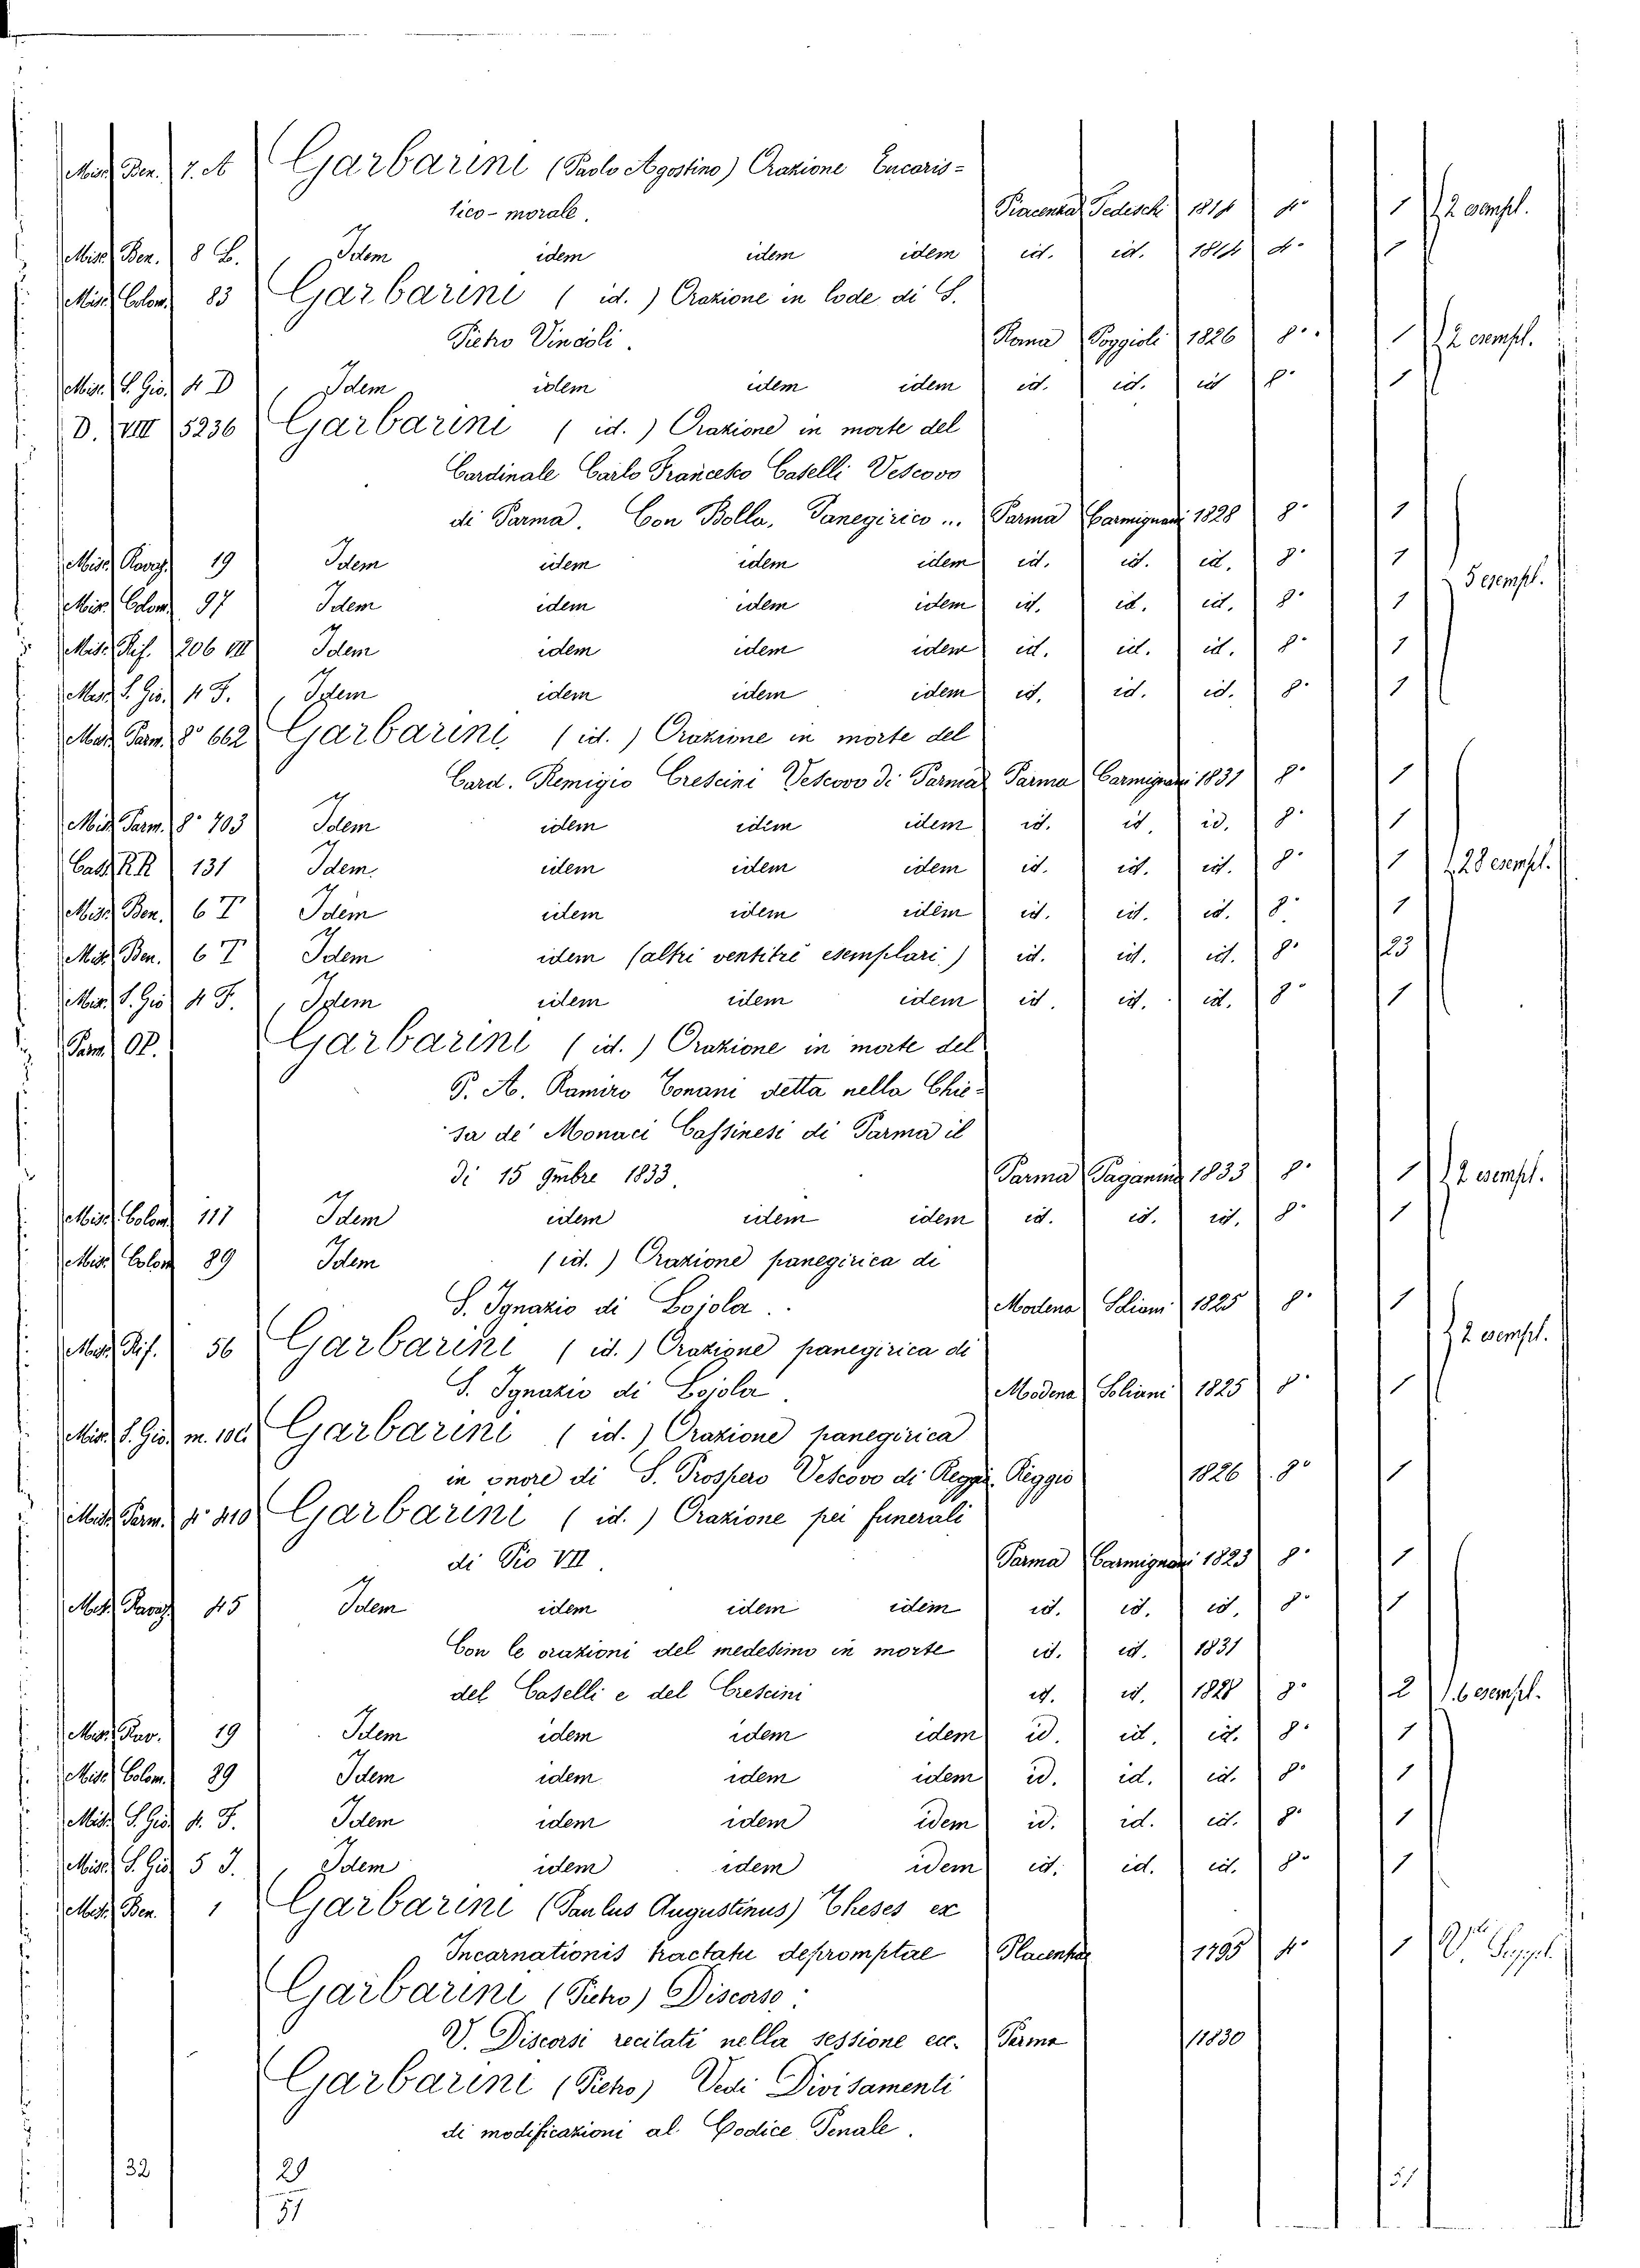 Misc. Ben. 7. A Garbarini (Paolo Agostino) Orazione Eucaris-
tico-morale. Piacenza Tedeschi 1814 4° 1 2 esempl.
Misc. Ben. 8 B. Idem idem idem idem id. id. 1814 4° 1
Misc. Colom. 83 Garbarini ( id. ) Orazione in lode di S.
Pietro Vincoli. Roma Poggioli 1826 8° 1 2 esempl.
Misc. S. Gio. 4 D Idem idem idem idem id. id. id 8° 1
D. VIII 5236 Garbarini ( id. ) Orazione in morte del
Cardinale Carlo Francesco Caselli Vescovo
di Parma. Con Bolla, Panegirico ... Parma Carmignani 1828 8° 1
Misc. Ravaz. 19 Idem idem idem idem id. id. id. 8° 1 5 esempl.
Misc. Colom. 97 Idem idem idem idem id. id. id. 8° 1
Misc. Rif. 206 VIII Idem idem idem idem id. id. id. 8° 1
Misc. S. Gio. 4 F. Idem idem idem idem id. id. id. 8° 1
Misc. Parm. 8° 662 Garbarini (id.) Orazione in morte del
Card. Remigio Crescini Vescovo di Parma Parma Carmignani 1831 8° 1
Misc. Parm. 8° 703 Idem idem idem idem id. id. id. 8° 1
Cass. R.R 131 Idem idem idem idem id. id. id. 8° 1 28 esempl.
Misc. Ben. 6 T Idem idem idem idem id. id. id. 8° 1
Misc. Ben. 6 T Idem idem (altri ventitrè esemplari) id. id. id. 8° 23
Misc. S. Gio 4 F. Idem idem idem idem id. id. id. 8° 1
Parm. Op. Garbarini (id.) Orazione in morte del
P. A. Ramiro Tonani detta nella Chie-
sa de' Monaci Cassinesi di Parma il
di 15 9mbre 1833. Parma Paganini 1833 8° 1 2 esempl.
Misc. Colom. 117 Idem idem idem idem id. id. id. 8° 1
Misc. Colom 89 Idem (id.) Orazione panegirica di
S. Ignazio di Lojola. Modena Soliani 1825 8° 1
Misc. Rif. 56 Garbarini ( id.) Orazione panegirica di 2 esempl.
S. Ignazio di Lojola. Modena Soliani 1825 8° 1
Misc. S. Gio. m. 100 Garbarini ( id.) Orazione panegirica
in onore di S. Prospero Vescovo di Reggio. Reggio 1826 8° 1
Misc. Parm. 4° 410 Garbarini ( id.) Orazione pei funerali
di Pio VII. Parma Carmignani 1823 8° 1
Misc. Ravaz. 45 Idem idem idem idem id. id. id. 8° 1
Con le orazioni del medesimo in morte id. id. 1831
del Caselli e del Crescini id. id. 1828 8° 2 6 esempl.
Misc. Rav. 19 Idem idem idem idem id. id. id. 8° 1
Misc. Colom. 89 Idem idem idem idem id. id. id. 8° 1
Misc. S. Gio. 4. F. Idem idem idem idem id. id. id. 8° 1
Misc. S. Gio 5 J. Idem idem idem idem id. id. id. 8° 1
Misc. Ben. 1 Garbarini (Paulus Augustinus) Theses ex
Incarnationis tractatu depromptae Placentiae 1795 4° 1 V. Suppl.
Garbarini (Pietro) Discorso:
V. Discorsi recitati nella sessione ecc. Parma 1830
Garbarini (Pietro) Vedi Divisamenti
di modificazioni al Codice Penale.
32 29 51
51